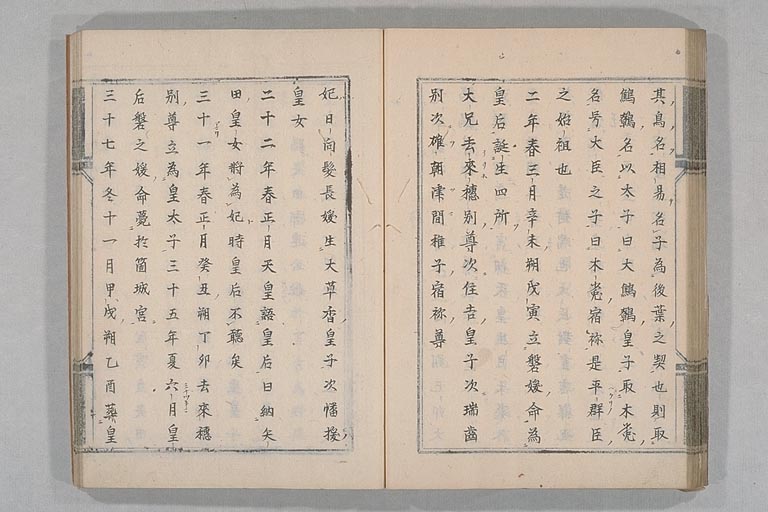 其鳥名相易名子為後葉之契也則取
鷦鷯名以太子曰大鷦鷯皇子取木菟
名号大臣之子曰木菟宿祢是平群臣
之始祖也
二年春三月辛未朔戊寅立磐媛命為
皇后誕生四所
大兄去來穗別尊次住吉皇子次瑞齒
別次雄朝津間稚子宿祢尊
妃日向髮長媛生大草香皇子次幡援
皇女
二十二年春正月天皇語皇后曰納矢
田皇女將為妃時皇后不聽矣
三十一年春正月癸丑朔丁卯去來穗
別尊立為皇太子三十五年夏六月皇
后磐之媛命薨於筒城宮
三十七年冬十一月甲戌朔乙酉葬皇